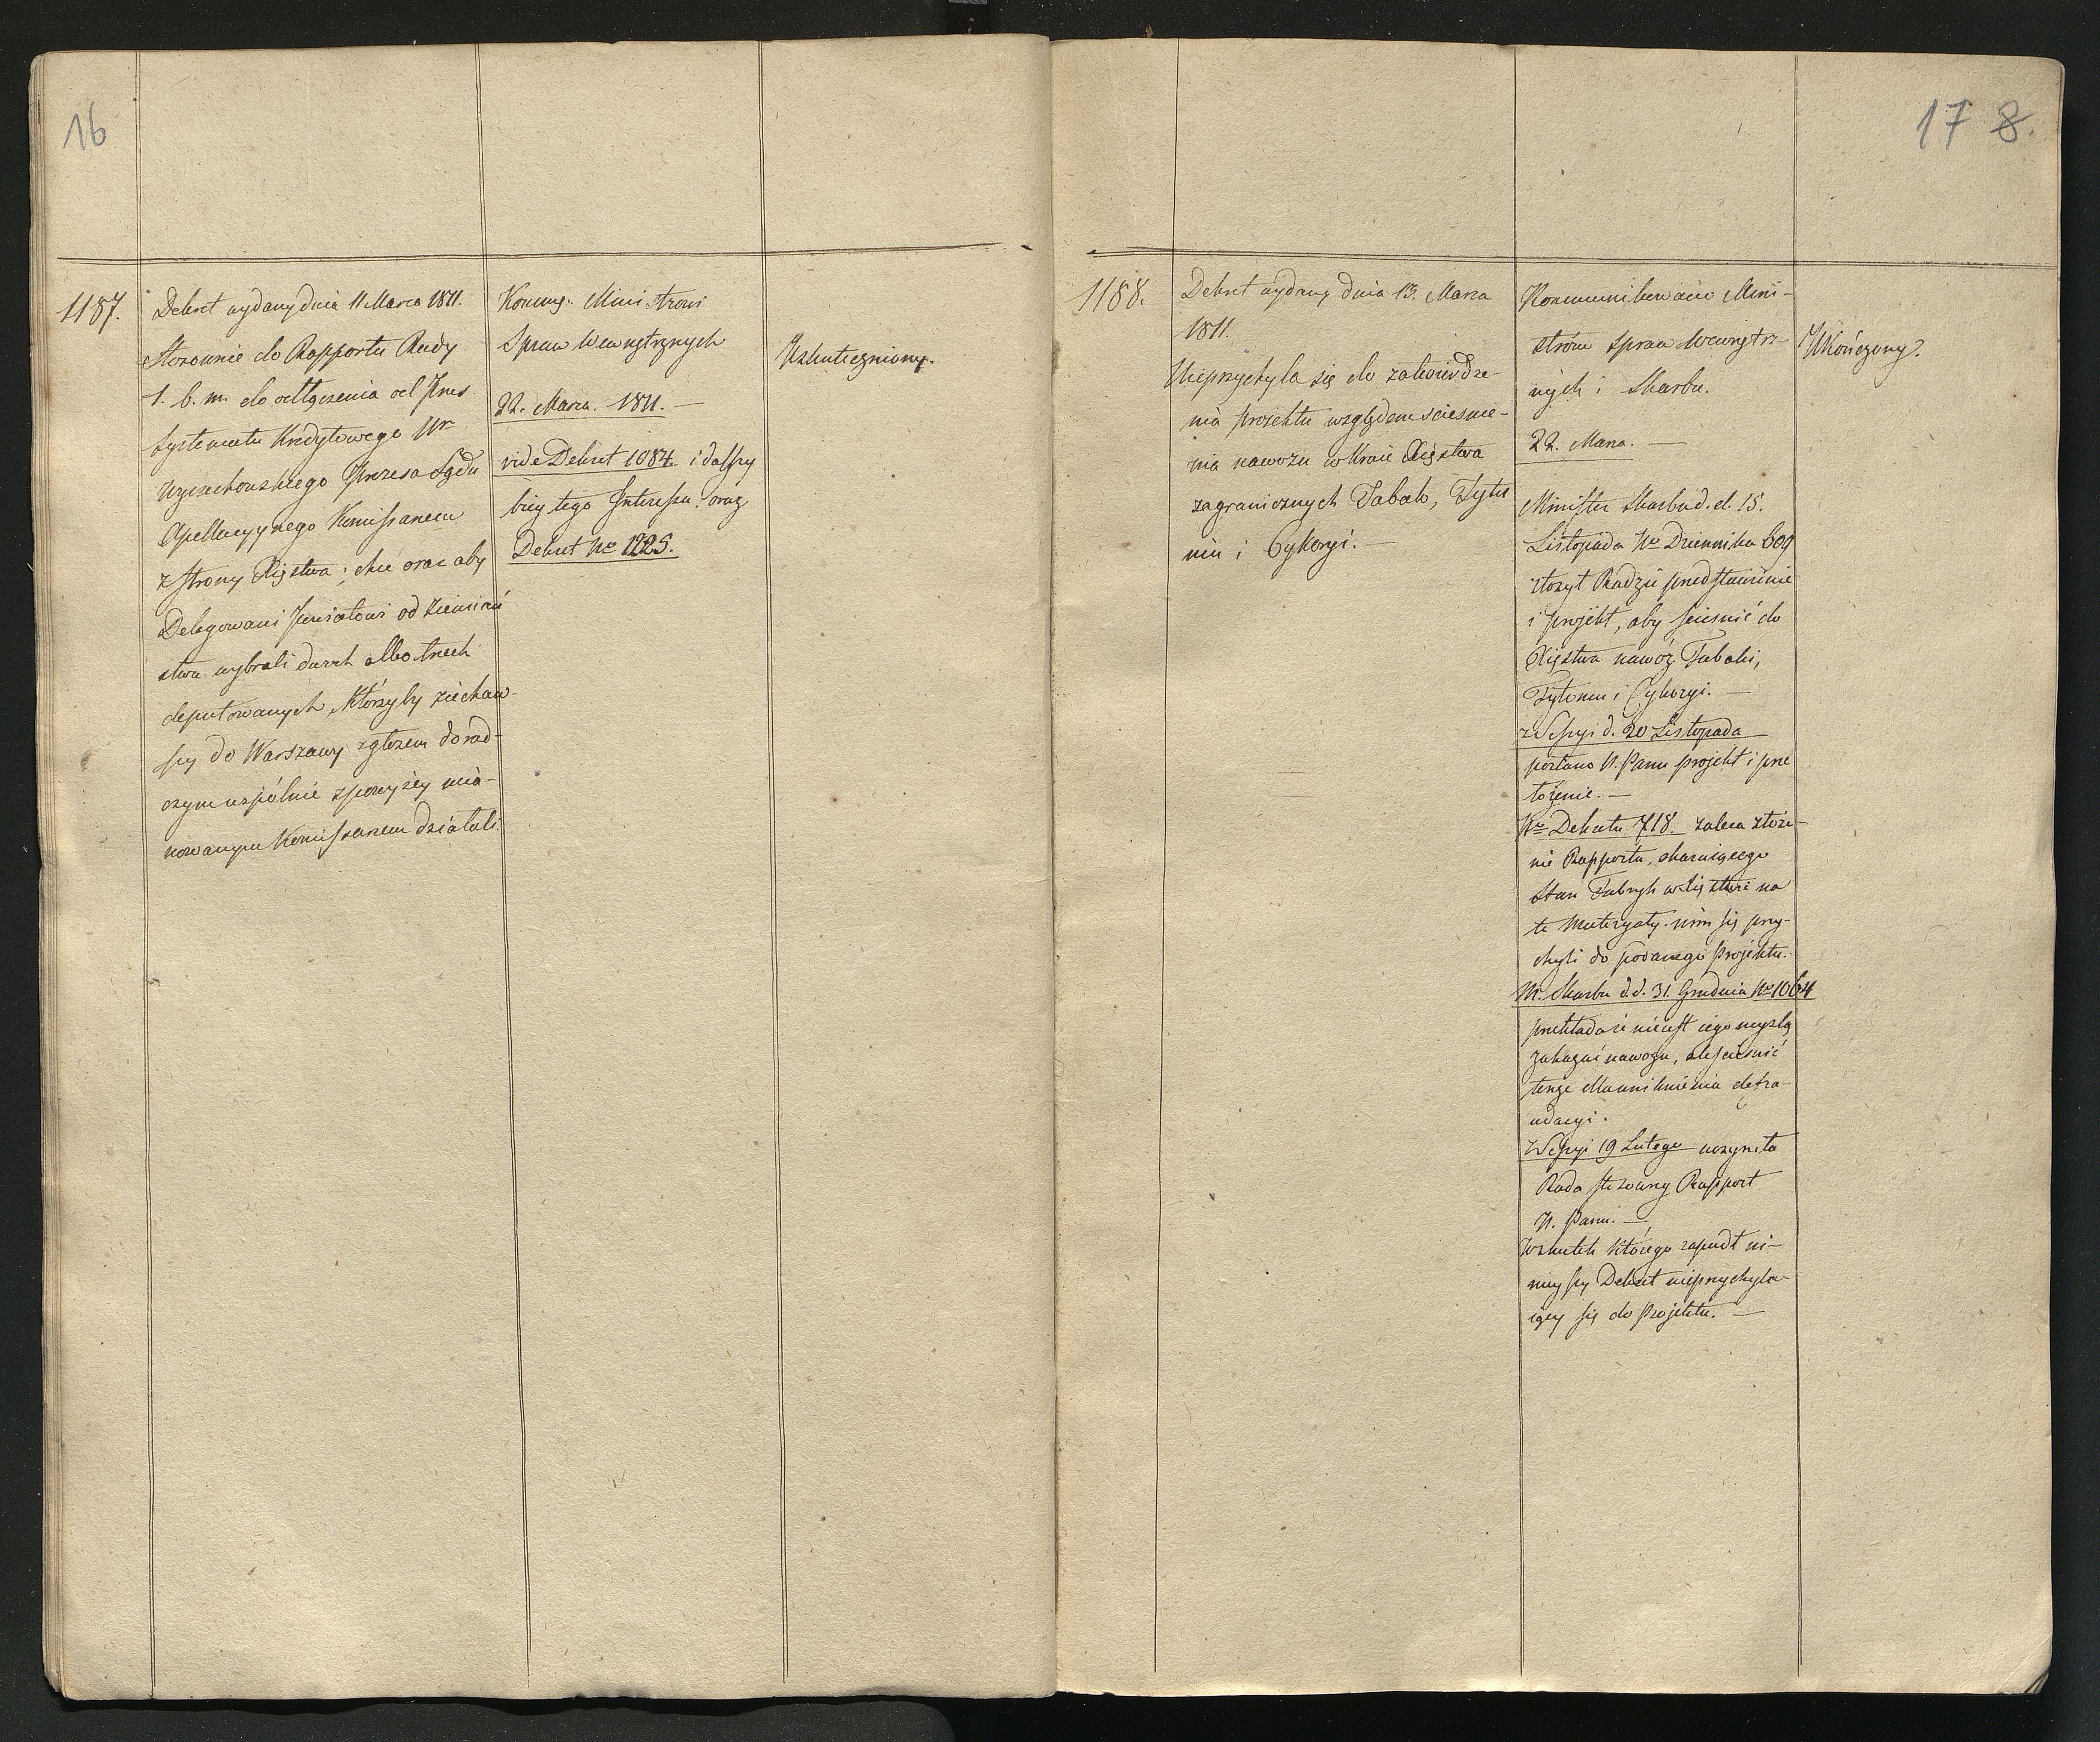 16
1187.
Dekret wydany dnia 11 Marca 1811.
Stosownie do Rapportu Rady
1. b. m. do odłączenia od
Systematu Kredytowego Wr
Wyczechowskiego Prezesa Sądu
Apellacyynego Komissarzem
z strony Xięstwa; chce oraz aby
Delegowani Powiatowi od Ziemiań
stwa wybrali dwóch albo trzech
deputowanych, którzyby ziechaw-
szy do Warszawy z głosem dorad-
czym wspólnie z powyżey mia-
nowanym Komissarzem działali.
Komung. Ministrowi
Spraw Wewnętrznych
22. Marca. 1811. —
vide Dekret 1084. i dalszy
bieg tego Interessu. oraz
Dekret No 1225.
Uskuteczniony.
17 8.
1188.
Dekret wydany dnia 13. Marca
1811.
Nieprzychyla się do zatwierdze-
nia projektu względem ścieśnie-
nia nawozu w Kraie Xięstwa
zagranicznych Tabak, Tytu
niu i Cykoryi. —
Kommunikowano Mini-
strom Spraw Wewnętrz-
nych i Skarbu.
22. Marca. —
Minister Skarbu d. d. 15.
Listopada No Dziennika 609
złożył Radzie przedstawienie
i projekt, aby ścieśnić do
Xięstwa nawóz Tabaki,
Tytoniu i Cykoryi. —
z Sessyi d. 20 Listopada
posłano N. Panu projekt i prze
łożenie. —
No Dekretu 718. zaleca złoże-
nie Rapportu, okazuiącego
Stan Fabryk w Xięstwie na
te Materyały. nim się przy-
chyli do podanego Projektu.
M. Skarbu d. d. 31. Grudnia No 1064
przekłada iż nie iest iego myślą
zakazać nawozu, ale ścieśnić
tenże dla uniknienia defra-
udacyi.
z Sessyi 19 Lutego uczyniła
Rada stosowny Rapport
N. Panu. —
Wskutek którego zapadł ni-
nieyszy Dekret nieprzychyla-
iący się do Projektu. —
Ukończony.